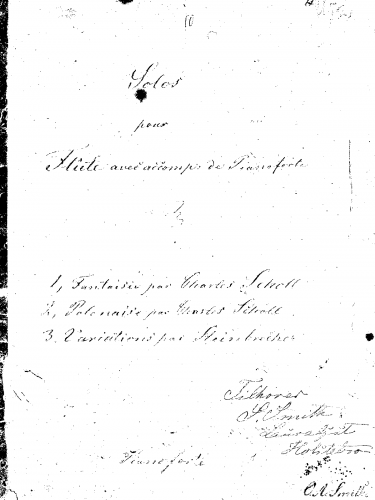 10
Solos
pour
Flûte avec accomp. de Pianoforte
1, Fantaisie par Charles Scholl
2, Polonaise par Charles Scholl
3. Variations par
Tilhörer
S. Smith
Pianoforte
C. A. Smith